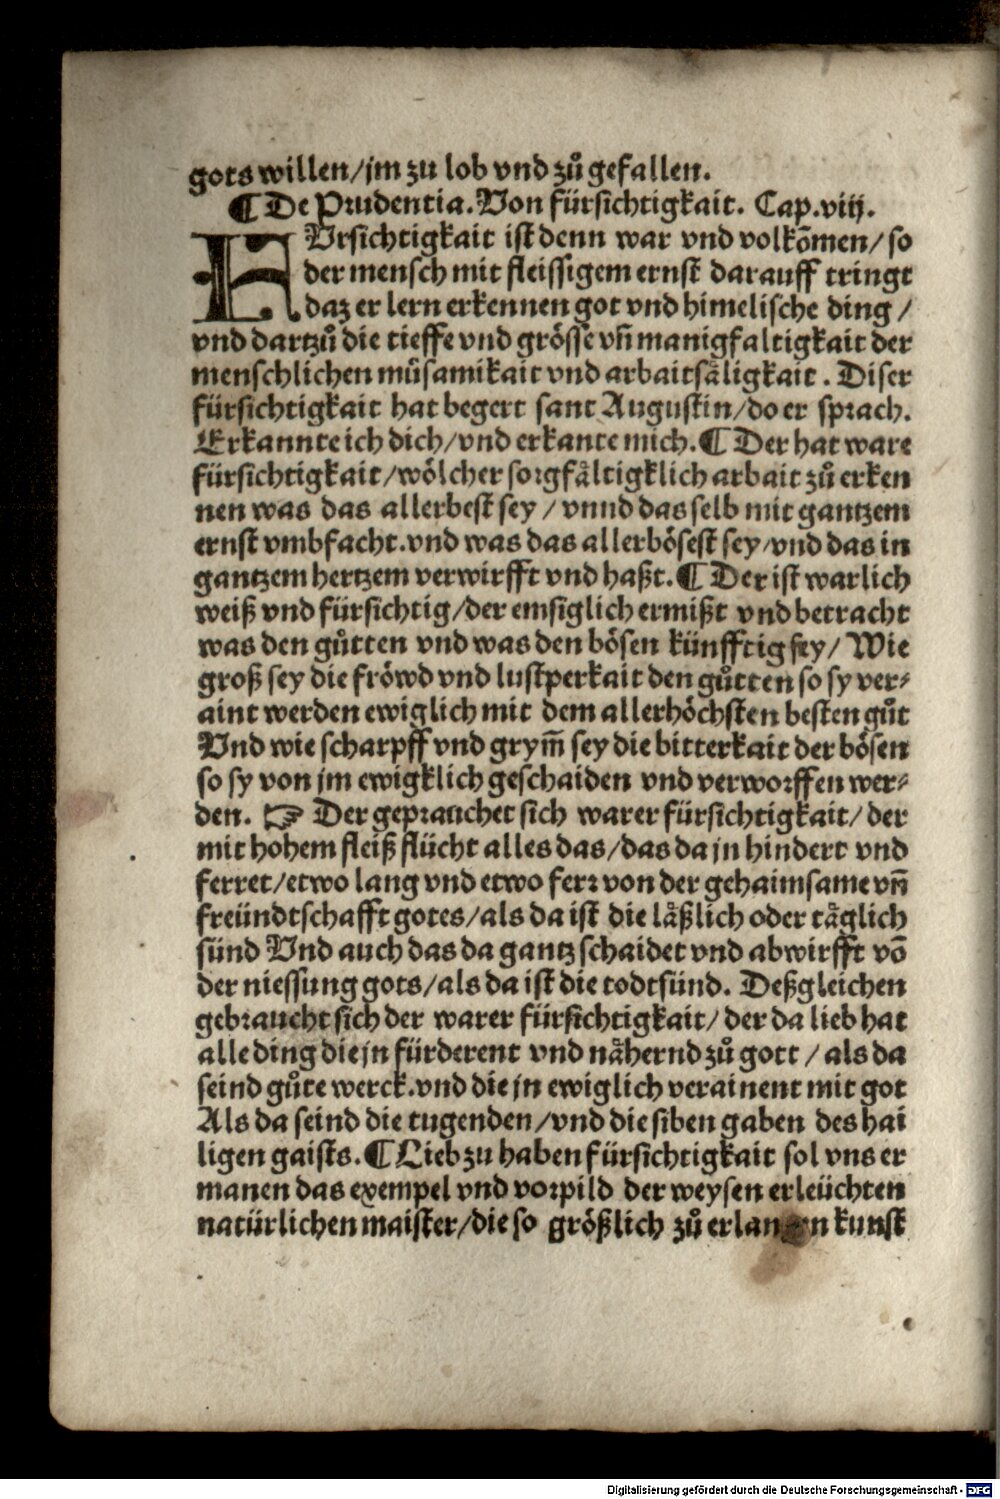 gots willen/jm zu lob vnd zů gefallen.
¶ De Prudentia. Von fürsichtigkait. Cap.viij.
FVrsichtigkait ist denn war vnd volkõmen/ so
der mensch mit fleissigem ernst darauff tringt
daz er lern erkennen got vnd himelische ding /
vnd dartzů die tieffe vnd grösse vñ manigfaltigkait der
menschlichen můsamikait vnd arbaitsåligkait . Diser
fürsichtigkait hat begert sant Augustin/do er sprach.
Erkannte ich dich/vnd erkante mich. ¶ Der hat ware
fürsichtigkait/wölcher sorgfåltigklich arbait zů erken
nen was das allerbest sey / vnnd das selb mit gantzem
ernst vmbfacht.vnd was das allerbösest sey/vnd das in
gantzem hertzem verwirfft vnd haßt. ¶ Der ist warlich
weiß vnd fürsichtig/der emsiglich ermißt vnd betracht
was den gůtten vnd was den bösen künfftig sey/ Wie
groß sey die fröwd vnd lustperkait den gůtten so sy ver-
aint werden ewiglich mit dem allerhöchsten besten gůt
Vnd wie scharpff vnd grym̃ sey die bitterkait der bösen
so sy von jm ewigklich geschaiden vnd verworffen wer-
den. ☞ Der geprauchet sich warer fürsichtigkait/ der
mit hohem fleiß flücht alles das/das da jn hindert vnd
ferret/etwo lang vnd etwo ferr von der gehaimsame vñ
freündtschafft gotes/als da ist die låßlich oder tåglich
sünd Vnd auch das da gantz schaidet vnd abwirfft võ
der niessung gots/als da ist die todtsünd. Deßgleichen
gebraucht sich der warer fürsichtigkait/ der da lieb hat
alle ding die jn fürderent vnd nåhernd zů gott / als da
seind gůte werck.vnd die jn ewiglich verainent mit got
Als da seind die tugenden/vnd die siben gaben des hai
ligen gaists. ¶ Lieb zu haben fürsichtigkait sol vns er
manen das exempel vnd vorpild der weysen erleüchten
natürlichen maister/die so größlich zů erlangen kunst
Digitalisierung gefördert durch die Deutsche Forschungsgemeinschaft - DFG